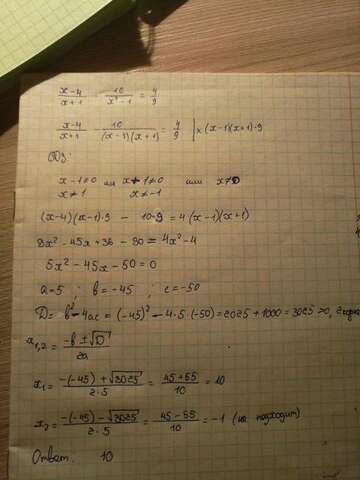 x-4/x+1 - 10/x²-1 = 4/9
x-4/x+1 - 10/(x-1)(x+1) = 4/9 | × (x-1)(x+1)·9
ОДЗ:
x-1≠0 или x+1≠0 или x≠0
x≠1 x≠-1
(x-4)(x-1)·9 - 10·9 = 4(x-1)(x+1)
9x² - 45x + 36 - 90 = 4x² - 4
5x² - 45x - 50 = 0
a=5 ; b=-45 ; c=-50
D = b² - 4ac = (-45)² - 4·5·(-50) = 2025 + 1000 = 3025 >0, 2
x1,2 = -b ± √D/2a
x1 = -(-45) + √3025/2·5 = 45+55/10 = 10
x2 = -(-45) - √3025/2·5 = 45-55/10 = -1 (не подходит)
Ответ. 10